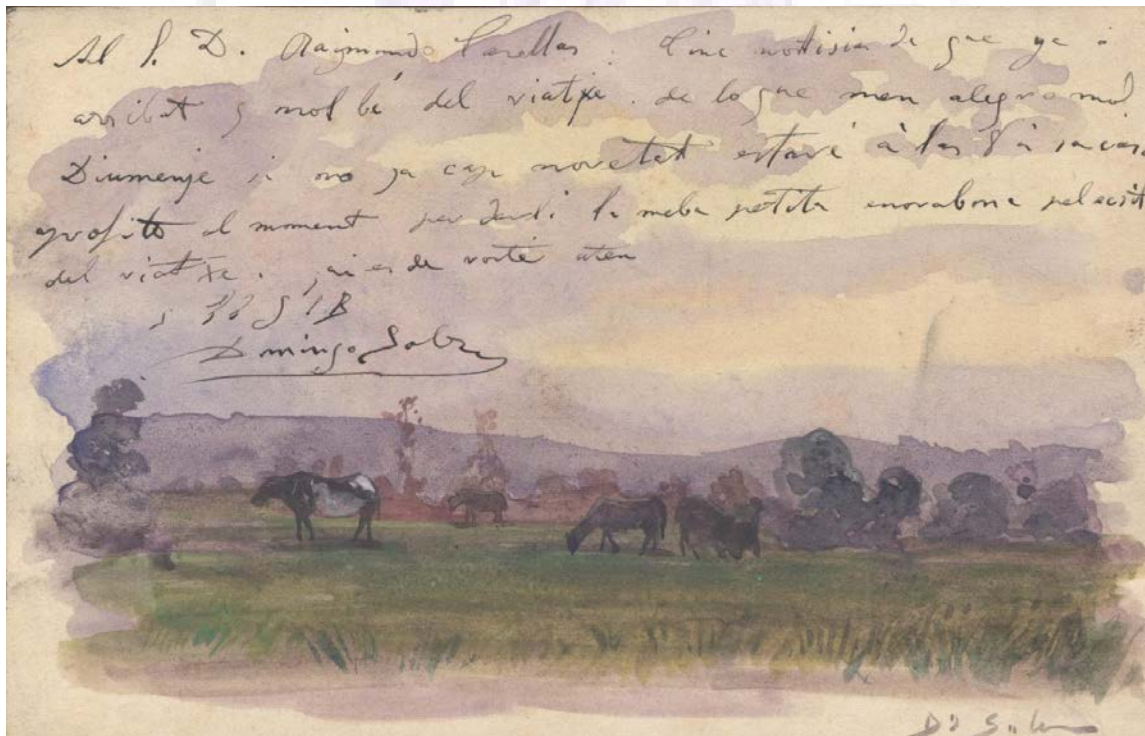 Al S. D. Raymondo Casellas. Tinc notisia de que ya a
arribat y mol bé del viatxe. de lo que men alegro mol
Diumenje si no ya cap novetat estaré à las 8 à sa casa.
aprofito el moment per darli la meba petita enorabona pel exit
del viatxe. de vosté aten
Domingo Soler
Dº Soler